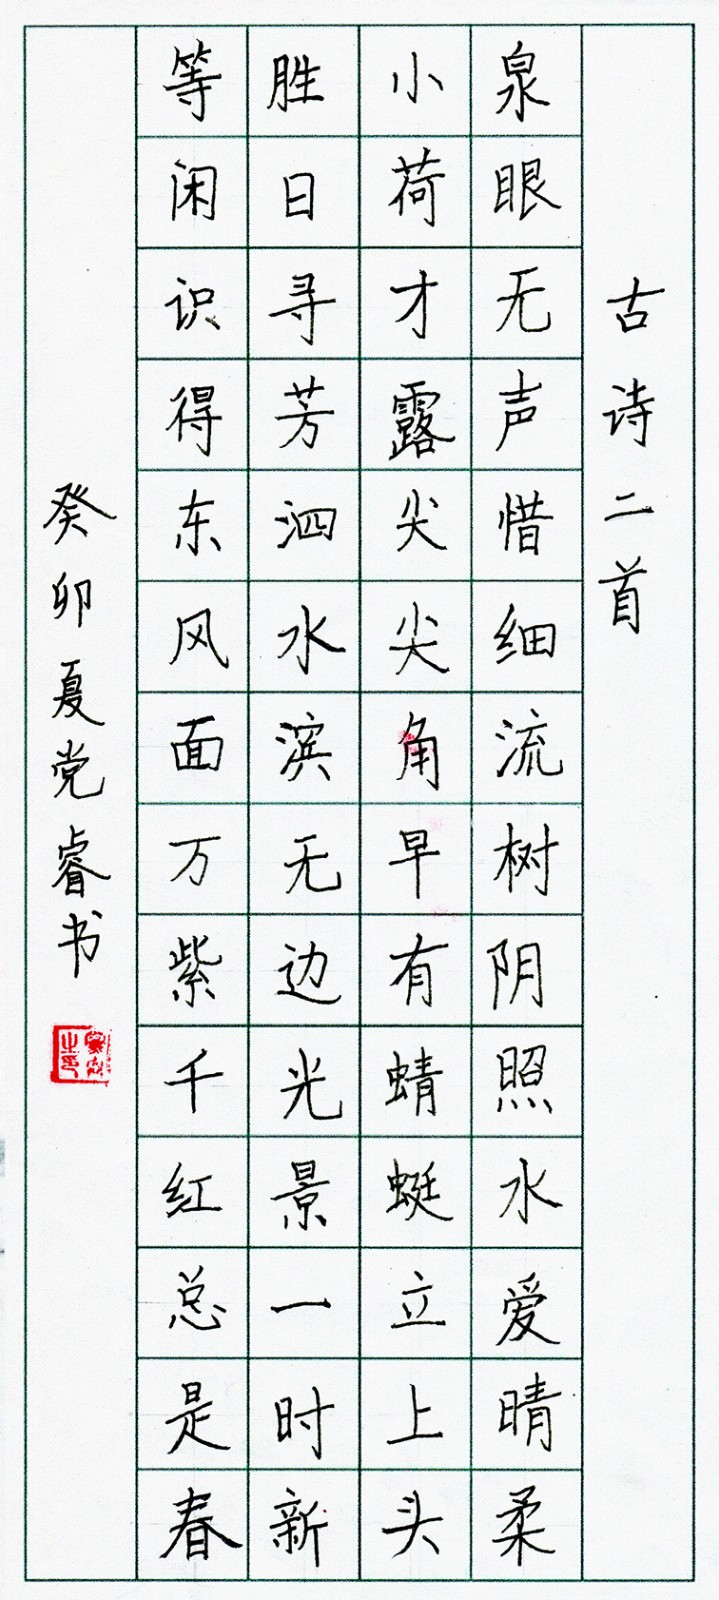 古诗二首
泉眼无声惜细流树阴照水爱晴柔
小荷才露尖尖角早有蜻蜓立上头
胜日寻芳泗水滨无边光景一时新
等闲识得东风面万紫千红总是春
癸卯夏党睿书